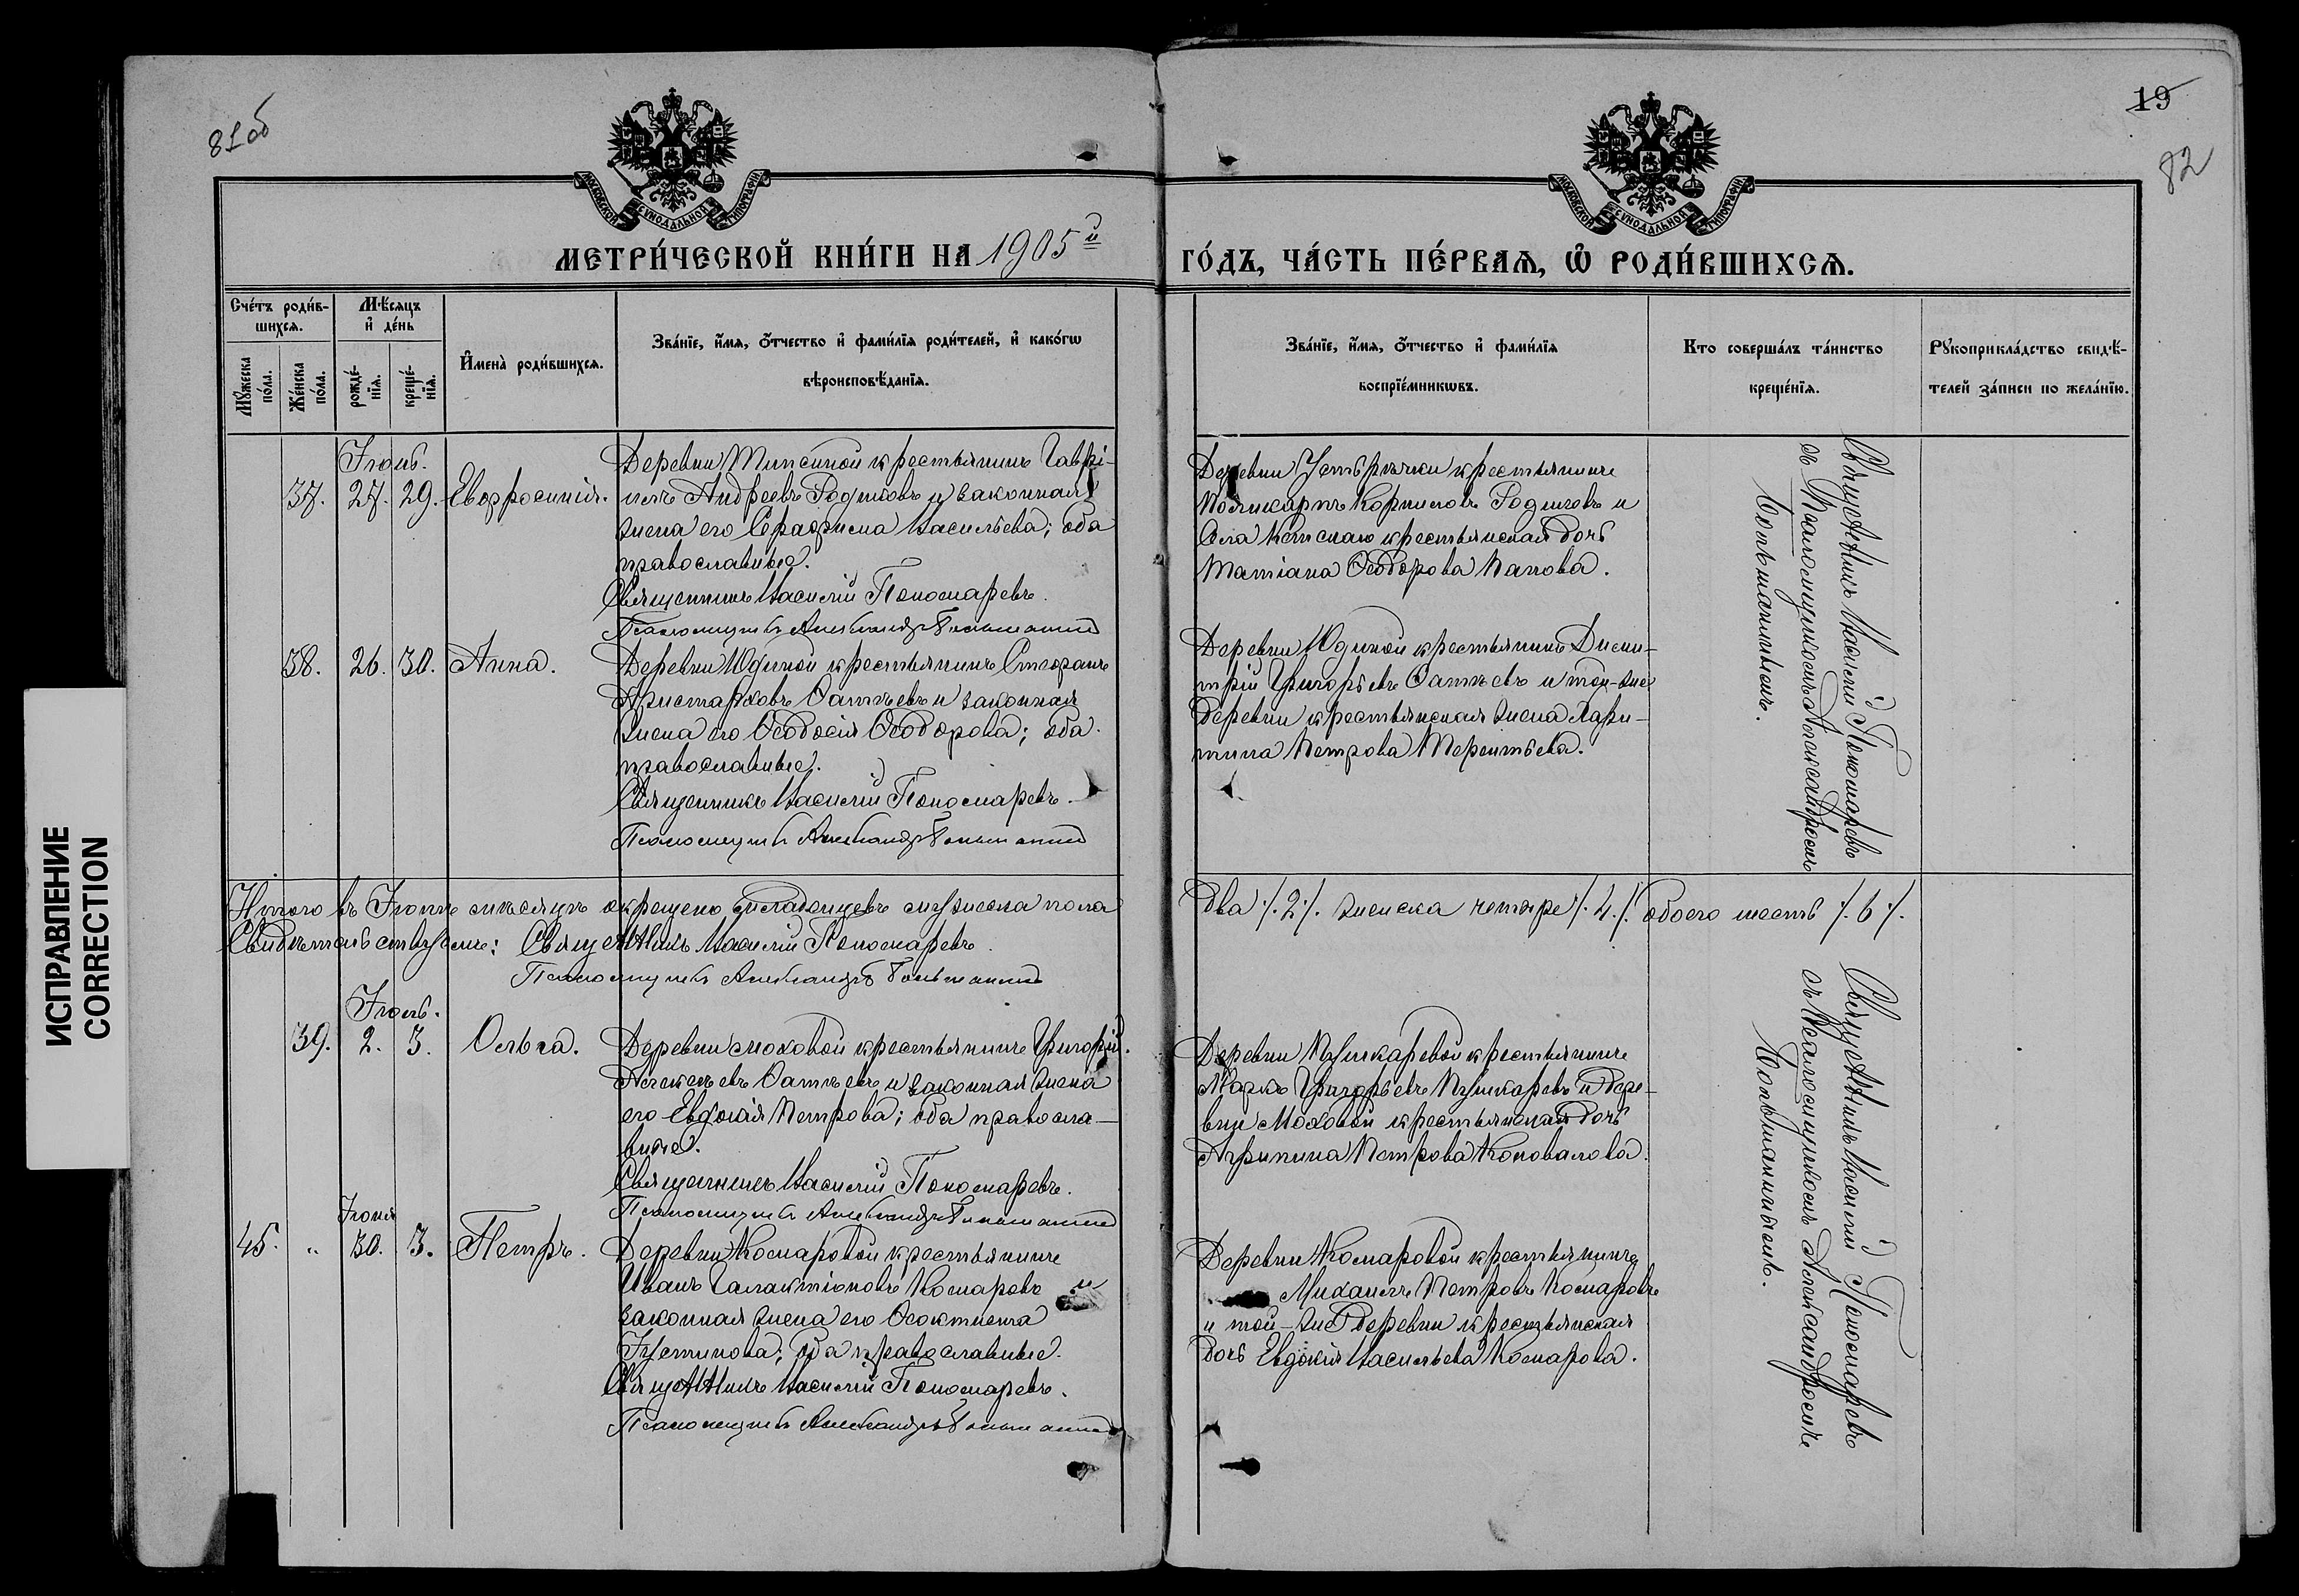 81об
19
82
МОСКОВСКОЙ СѴНОДАЛЬНОЙ ТИПОГРАФІИ
МОСКОВСКОЙ СѴНОДАЛЬНОЙ ТИПОГРАФІИ
МЕТРИ́ЧЕСКОЙ КНИ́ГИ НА 1905й
ГО́ДЪ, ЧА́СТЬ ПЕ́РВАѦ, Ѽ РОДИ́ВШИХСѦ.
Сче́тъ роди́в-
шихсѧ.
Мѣ́сѧцъ
и҆ де́нь
Мꙋ́жеска
по́ла.
Же́нска
по́ла.
рожде́-
нїѧ.
креще́-
нїѧ.
И҆мена̀ роди́вшихсѧ.
Зва́нїе, и҆́мѧ, ѻ҆́тчество и҆ фами́лїѧ роди́телей, и҆ како́гѡ
вѣроисповѣ́данїѧ.
Зва́нїе, и҆́мѧ, ѻ҆́тчество и҆ фами́лїѧ
воспрїе́мникѡвъ.
Кто соверша́лъ та́инство
креще́нїѧ.
Рꙋкоприкла́дство свидѣ́-
телей за́писи по жела́нїю.
Іюнь.
37. 27. 29. Евфросинія.
Деревни Типсиной крестьянинъ Гаврі-
илъ Андреевъ Родиковъ и законная
жена его Серафима Васильева; оба
православные.
Священникъ Василій Пономаревъ.
Псаломщикъ Александръ
Деревни Устьрѣчки крестьянинъ
Поликарпъ Корниловъ Родиковъ и
Села Кетскаго крестьянская дочь
Татіана Ѳеодорова Попова.
Священникъ Василій Пономаревъ
съ Псаломщикомъ Александромъ
38. 26. 30. Анна.
Деревни Юдиной крестьянинъ Стефанъ
Аристарховъ Фатѣевъ и законная
жена его Ѳеодосія Ѳеодорова; оба
православные.
Священникъ Василій Пономаревъ.
Псаломщикъ Александръ
Деревни Юдиной крестьянинъ Дими-
трій Григорьевъ Фатѣевъ и той-же
деревни крестьянская жена Хари-
тина Петрова Терентьева.
Итого въ Іюнѣ мѣсяцѣ окрещено младенцевъ мужеска пола
Два /.2/. женска четыре /.4./. обоего шесть /.6/.
Свидѣтельствуемъ: Священникъ Василій Пономаревъ.
Псаломщикъ Александръ
Іюль.
39. 2. 3. Ольга.
Деревни Моховой крестьянинъ Григорій
Алексѣевъ Фатѣевъ и законная жена
его Евдокія Петрова; оба правосла-
вные.
Священникъ Василій Пономаревъ.
Псаломщикъ Александръ
Деревни Пушкаревой крестьянинъ
Марко Григорьевъ Пушкаревъ и дере-
вни Моховой крестьянская дочь
Агрипина Петрова Коновалова.
Священникъ Василій Пономаревъ
съ Псаломщикомъ Александромъ
Іюня
45. „ 30. 3. Петръ.
Деревни Комаровой крестьянинъ
Иванъ Галактіоновъ Комаровъ и
законная жена его Ѳеоктиста
Іустинова; оба православные.
Священникъ Василій Пономаревъ.
Псаломщикъ Александръ
Деревни Комаровой крестьянинъ
Михаилъ Петровъ Комаровъ
и той-же деревни крестьянская
дочь Евдокія Васильева Комарова.
ИСПРАВЛЕНИЕ
CORRECTION